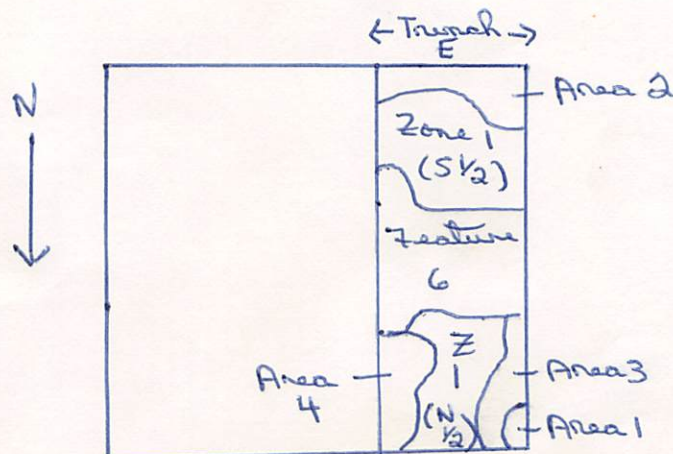 ← Trench →
E
N
Area 2
Zone 1
(S 1/2)
Feature
6
Z
1
(N
1/2)
Area
4
Area 3
Area 1